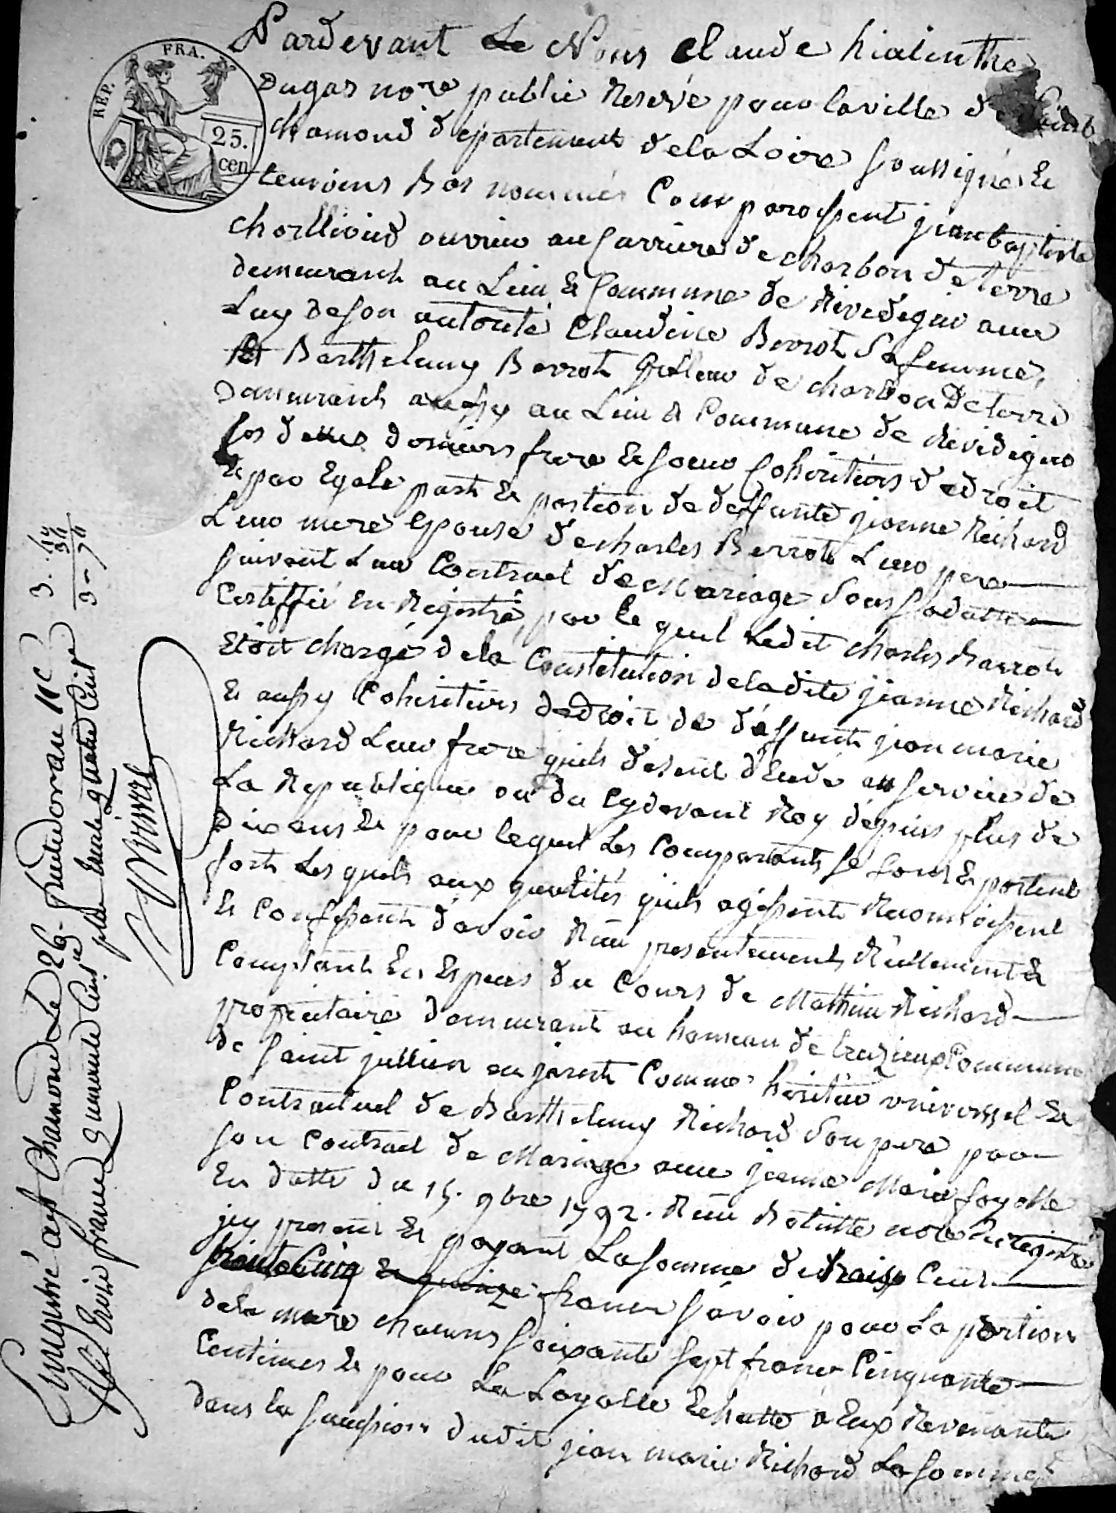 Pardevant Le Nous Claude hiacinthe
Dugas no.re public Reservé pour la ville de Saint
chamond département dela Loire Soussigné Et
temoins Bas nommés Comparoissent jean baptiste
chorlliond ouvrier au Carriere de charbon de terre
demeurant au Lieu & Commune de Rivedegier avec
Luy De son autorité Claudine Berrot Sa femme,
Barthelemy Berrot de charbon De terre
Demeurant aussy au Lieu & Commune de Rivedegier
Les deux derniers frere & soeur Cohéritiers de droit
& par Egale part & portion de deffunte jeanne Richard
Leur mere Epouse de charles Berrot Leur pere
suivant Leur Contract de Mariage sous sa datte
Certiffié En Registré par le quel Ledit charles Barrot
Etoit chargé dela Constitution de ladite jeanne Richard
& aussy Cohéritiers de droit de déffunt jean marie
Richard Leur frere quils disent décédé au service de
La Republique ou du Cydevant Roy dépuis plus de
Dix ans & pour lequel Les Comparants se sont & portent
fort Les quels aux qualités quils agissent Reconnoissent
& Confessent d'avoir Reçu présentement Réellement &
Comptant En Especes du Cours de Mathieu Richard
propriétaire demeurant au hameau de Commune
de Saint jullien en jarest Comme héritier universel &
Contractuel de Barthelemy Richard Son pere par
son Contract de Mariage avec jeanne Marie fayolle
En datte du 15. 9bre 1792. Reçu no.re Enregistré
jcy present & payant La Somme de trois Cent
trente Cinq & quinze francs sçavoir pour La portion
dela mere chacuns soixante sept francs Cinquante
Centimes & pour La Echutte à Eux Revenante
dans la succession dudit jean marie Richard La somme
REP. FRA.
25.
cen
Enregistré a St Chamond Le 26. fructidor an 11e
trois francs quarante Cinq
plus trente quatre Cent
3. 44
34
3 - 78